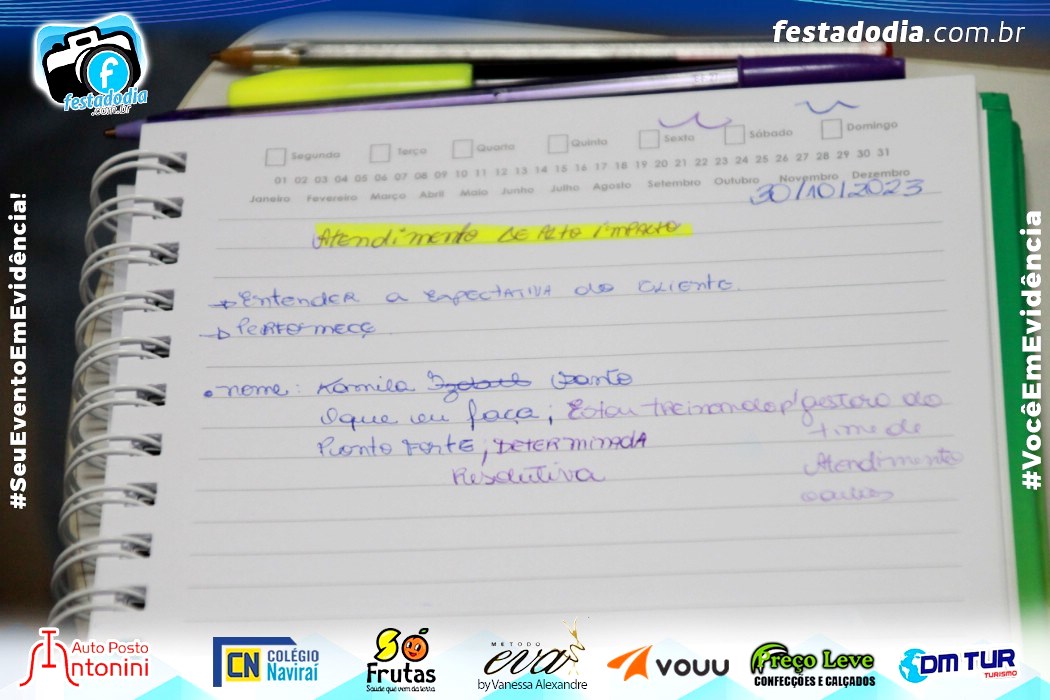 festadodia.com.br
festadodia
.com.br
Segunda Terça Quarta Quinta Sexta Sábado Domingo
01 02 03 04 05 06 07 08 09 10 11 12 13 14 15 16 17 18 19 20 21 22 23 24 25 26 27 28 29 30 31
Janeiro Fevereiro Março Abril Maio Junho Julho Agosto Setembro Outubro Novembro Dezembro
30/10/2023
Atendimento de Alto impacto
→ Entender a expectativa do cliente.
→ Performece
• nome: Kamila
Oque eu faça; Estou treinando p/ gestora do
time de
Atendimento
Ponto Forte; Determinada
Resolutiva
#SeuEventoEmEvidência!
#VocêEmEvidência
Auto Posto
Antonini
CN COLÉGIO
Naviraí
SÓ
Frutas
Saúde que vem da terra
METODO
eva
by Vanessa Alexandre
VOUU
Preço Leve
CONFECÇÕES E CALÇADOS
DM TUR
TURISMO